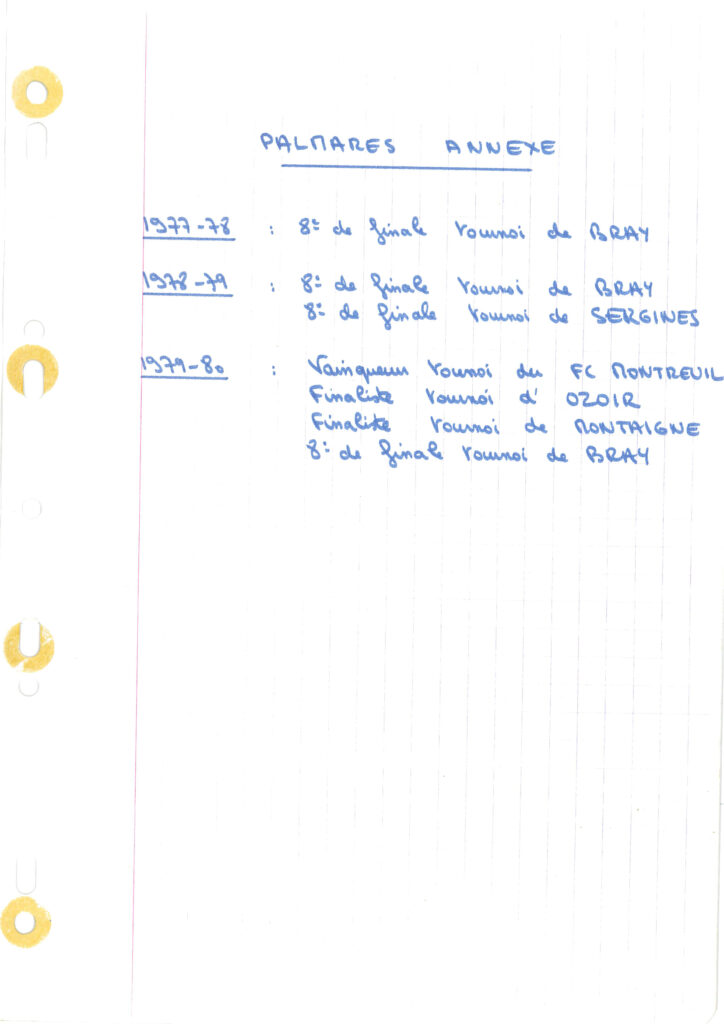 PALMARES ANNEXE
1977-78 : 8e de finale Tournoi de BRAY
1978-79 : 8e de finale Tournoi de BRAY
8e de finale Tournoi de SERGINES
1979-80 : Vainqueur Tournoi du FC MONTREUIL
Finaliste Tournoi d'OZOIR
Finaliste Tournoi de MONTAIGNE
8e de finale Tournoi de BRAY